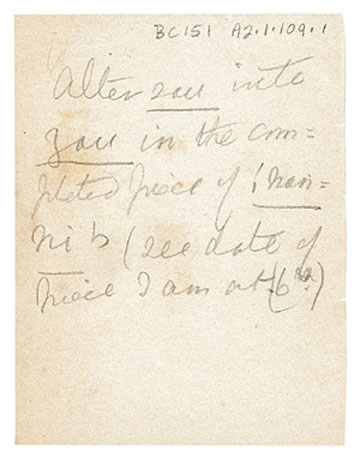 BC151 A2.1.109.1
Alter zau into
zau in the com=
pleted piece of !nan=
ni b (see date of
piece I am at